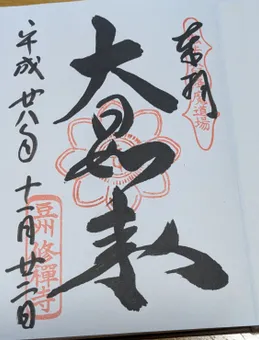 奉拝
道場
大日如来
平成廿八年十一月廿二日
豆州修禪寺